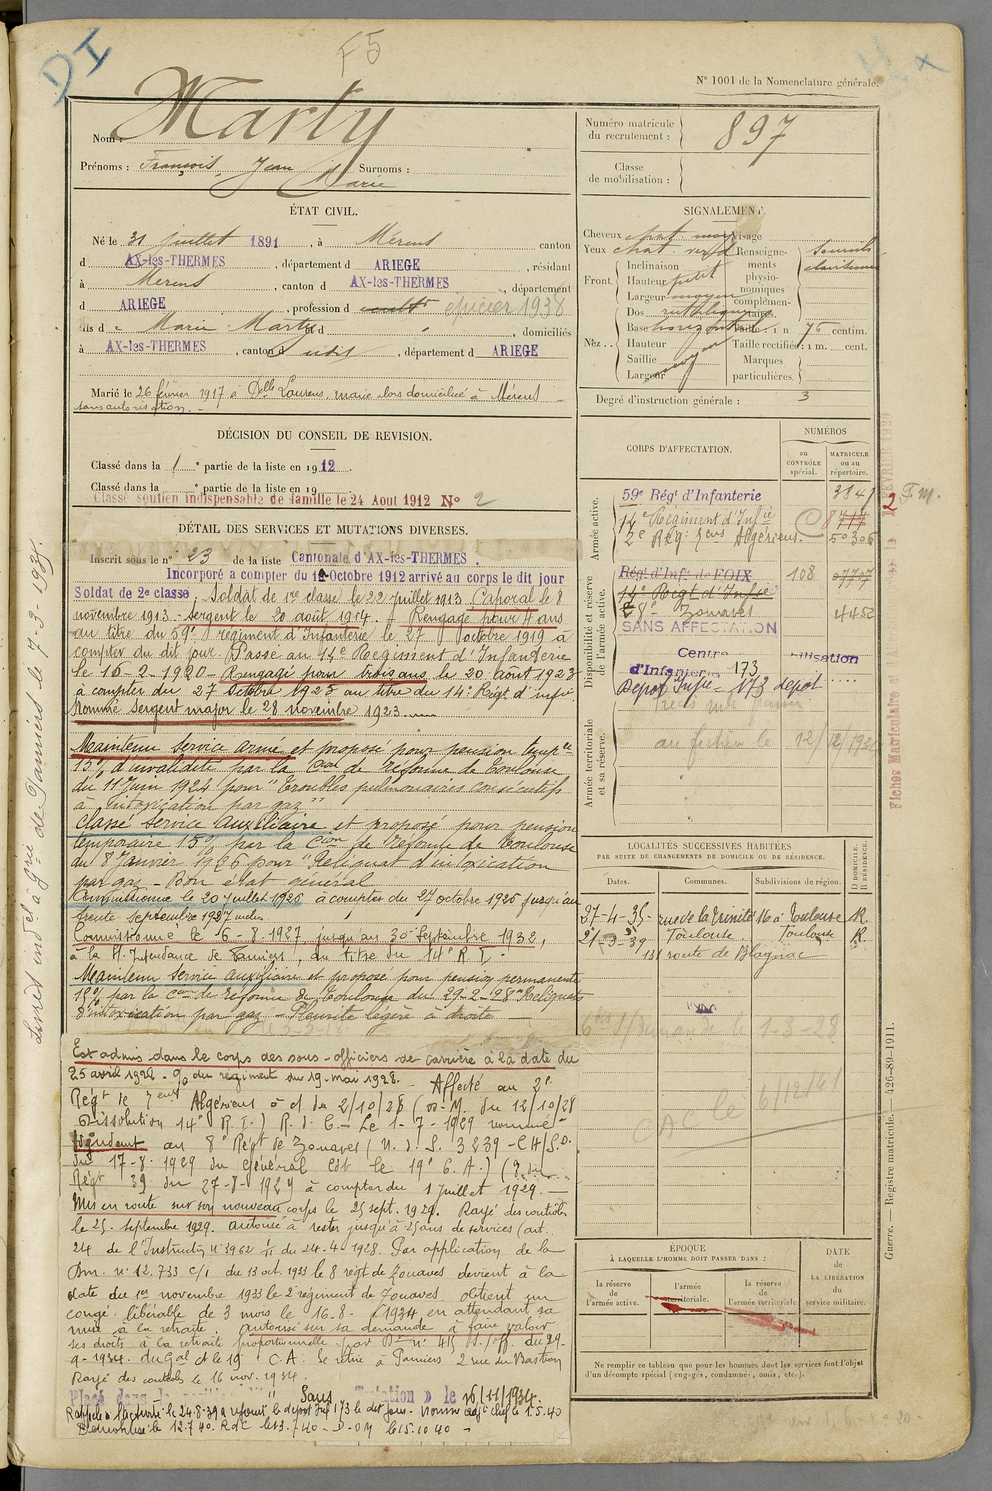 DI
F5
N° 1001 de la Nomenclature générale.
Nom : Marty
Prénoms : François, Jean Marie Surnoms :
Numéro matricule du recrutement : 897
Classe de mobilisation :
ÉTAT CIVIL.
Né le 31 juillet 1891, à Mérens canton
d AX-les-THERMES, département d ARIEGE, résidant
à Mérens, canton d AX-les-THERMES, département
d ARIEGE, profession d cultr epicier 1938
fils d e Marie Marty et d , domiciliés
à AX-les-THERMES, canton d udit, département d ARIEGE
Marié le 26 février 1917 à Dlle Laurens, marie alors domiciliée à Mérens
sans autorisation. -
SIGNALEMENT.
Cheveux chat moy Visage
Yeux chat verd Renseignements physionomiques complémentaires. Sourcils
Front. Inclinaison
Hauteur petit
Largeur moyen
Nez. Dos rectiligne
Base horizontal Taille : 1 m 75 centim.
Hauteur Taille rectifiée : 1 m. cent.
Saillie moyen Marques particulières.
Largeur
Degré d'instruction générale : 3
DÉCISION DU CONSEIL DE REVISION.
Classé dans la 1e partie de la liste en 1912.
Classé dans la e partie de la liste en 19
Classé soutien indispensable de famille le 24 Aout 1912 N° 2
DÉTAIL DES SERVICES ET MUTATIONS DIVERSES.
Inscrit sous le n° 23 de la liste Cantonale d'AX-les-THERMES.
Incorporé a compter du 12 Octobre 1912 arrivé au corps le dit jour
Soldat de 2e classe. Soldat de 1re classe le 22 juillet 1913 Caporal le 8
novembre 1913 - Sergent le 20 août 1914. Rengagé pour 4 ans
au titre du 59e régiment d'Infanterie le 27 octobre 1919 à
compter du dit jour. Passé au 14e Régiment d'Infanterie
le 16-2-1920 - Rengagé pour trois ans le 20 Août 1923
à compter du 27 Octobre 1923 au titre du 14e Régt d'infie
Nommé Sergent major le 28 novembre 1923
Maintenu service armé et proposé pour pension tempre
15% d'invalidité par la Cion de réforme de Toulouse
du 11 Juin 1924 pour "Troubles pulmonaires consécutifs
à intoxication par gaz"
Classé Service Auxiliaire et proposé pour pension
temporaire 15% par la Cion de réforme de Toulouse
du 8 Janvier 1926 pour "Reliquat d'intoxication
par gaz - Bon état général
Commissionné le 20 juillet 1926 à compter du 27 octobre 1926 jusqu'au
trente septembre 1927
Commissionné le 6-8-1927, jusqu'au 30 Septembre 1932,
à la S. Intendance de Pamiers, au titre du 14e R.I.
Maintenu Service auxiliaire et proposé pour pension permanente
15% par la Cion de réforme de Toulouse du 29-2-28 "Reliquats
d'intoxication par gaz - Pleurite légère à droite
Est admis dans le corps des sous-officiers de carrière à la date du
25 avril 1928 - du régiment du 19 mai 1928. - Affecté au 2e
Régt de Algériens à d du 2/10/28 (D.M. du 12/10/28
Dissolution 14e R.I.) R.d.C. - Le 1-7-1929 nommé
Adjudant au 8e Régt de Zouaves (N.d.S. 3239 - CH/S.O.
du 17-8-1929 du Général Cdt le 19e C.A.) (
Régt 39 du 27-8-1929 à compter du 1 juillet 1929. -
Mis en route sur son nouveau corps le 25 sept. 1929. Rayé des contrôles
le 25 septembre 1929. Autorisé à rester jusqu'à 25 ans de services (art.
24 de l'Instruction n° 3962 du 24-4-1928. Par application de la
Dm. n° 12.733 C/1 du 13 oct. 1933 le 8 régt de Zouaves devient à la
date du 1er novembre 1933 le 2 régiment de Zouaves. Obtient un
congé libérable de 3 mois le 16-8-1934 en attendant sa
mise à la retraite. Autorisé sur sa demande à faire valoir
ses droits à la retraite proportionnelle par Don n° 415 du 29-
9-1934. du Gal Ct le 19 C.A. Se retire à Pamiers 2 rue du Bastion
Rayé des contrôles le 16 nov. 1934.
Placé dans la position " Sans Affectation » le 16/11/1934
Rappelé à l'activité le 24.8.39 a rejoint le dépôt Inf 173 le dit jour. Nommé adjt chef le 1.5.40
Démobilisé le 12.7.40. RdC le 13.7.40 -
CORPS D'AFFECTATION.
NUMÉROS
au CONTRÔLE spécial.
MATRICULE ou au répertoire.
Armée active.
59e Régt d'Infanterie 3341
14e Régiment d'Infie 8717
2e Régt Algériens. 50306
Disponibilité et réserve de l'armée active.
Régt d'Infie de FOIX 108
14e Régt d'Infie
8e Zouaves 4452
SANS AFFECTATION
Centre Mobilisation
d'Infanterie 173
Dépôt Infie - 173 dépôt
Armée territoriale et sa réserve.
12/12/193
LOCALITÉS SUCCESSIVES HABITÉES
PAR SUITE DE CHANGEMENTS DE DOMICILE OU DE RÉSIDENCE.
Dates. Communes. Subdivisions de région. D DOMICILE. R RÉSIDENCE.
27-4-35 - rue de la Trinité 16 à Toulouse R.
21-3-39 Toulouse Toulouse R.
131 route de Blagnac
1-3-28
CAC le 6/12/41
ÉPOQUE
À LAQUELLE L'HOMME DOIT PASSER DANS :
la réserve de l'armée active.
l'armée territoriale.
la réserve de l'armée territoriale
DATE DE LA LIBÉRATION du service militaire.
Ne remplir ce tableau que pour les hommes dont les services font l'objet d'un décompte spécial (engagés, condamnés, omis, etc.).
Guerre. — Registre matricule. — 426-89-1911.
Fiches Matriculaire et
FÉVRIER 1920
2 F.M.